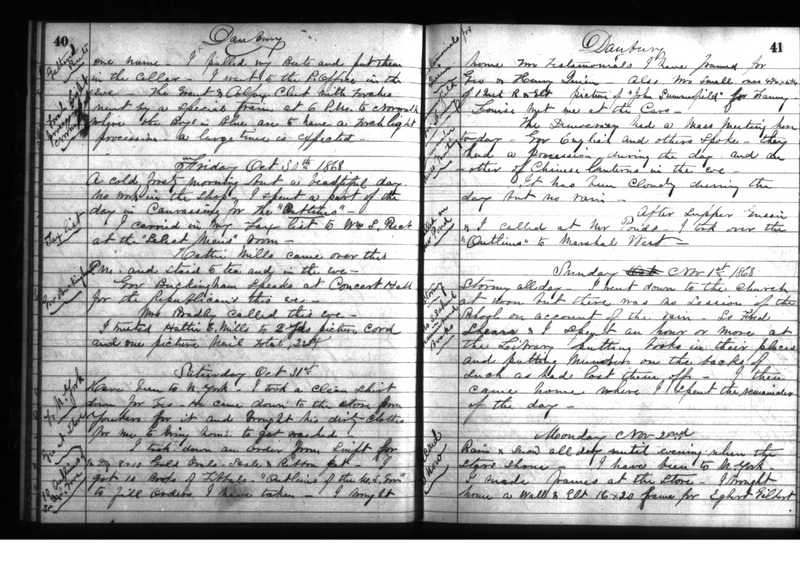 40
Danbury
one name - I pulled my Beets and put them
in the Cellar - I went to the P. Office in the
eve - The Grant & Colfax Club with Torches
went by a special train at 6 P.M. to Norwalk
where the Boys in Blue are to have a Torchlight
procession - a large time is expected -
Friday Oct 30th 1868
A cold frosty morning but a beautiful day
no work in the shop. I spent a part of the
day in Canvassing for the "Outlines" -
I carried in my Tax List to Wm S. Peck
at the "Select Mens" room -
Hattie Mills came over this
P.M. and staid to tea and in the eve -
Gov Buckingham speaks at Concert Hall
for the Republicans this eve -
Mrs Bradley called this eve -
Hattie E. Mills to 2 yds picture Cord
and one picture Nail total 22¢
Saturday Oct 31st
Have been to N. York. I took a clean shirt
down for Geo. He came down to the store from
Yonkers for it and brought his dirty clothes
for me to bring home to get washed -
I took down an order from Swift for
8x10 Gold Ovals
got 10 Books of "Outlines of the U.S. Gov"
to fill orders I have taken - I brought
Tax List
Gov Buckingham
To N. York
Geo at Store
41
Danbury
home two Testimonials I have framed for
Geo & Henry Quien - Also two small ones
picture of "John Summerfield" for Fanny -
Louise met me at the Cars -
The Democracy had a Mass Meeting here
to-day - Gov English and others spoke - they
had a procession during the day and an
other of Chinese Lanterns in the eve -
It has been Cloudy during the
day but no rain -
After Supper Gussie
& I called at Mr Ponds - I took over the
"Outlines" to Marshal West -
Sunday Nov 1st 1868
Stormy all day - I went down to the Church
at noon but there was no session of the
School on account of the rain - So Fred
Shears & I spent an hour or more at
the Library putting books in their places
and putting Numbers on the backs of
such as had lost them off - I then
came home where I spent the remainder
of the day -
Monday Nov 2nd
Rain & Snow all day until evening when the
stars shone - I have been to N. York -
I made frames at the Store - I brought
home a Wall & Glt 16x20 frame for Egbert Gilbert
Stormy
Books